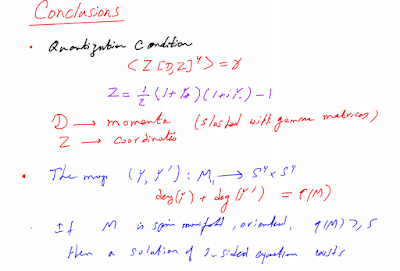 Conclusions
• Quantization Condition
< Z [D,Z]⁴ > = γ
Z = ½ (1+ ) (1+i ) - 1
D → momenta (slashed with gamma matrices)
Z → coordinates
• The map (Y, Y') : M₄ → S⁴ x S⁴
deg(Y) + deg(Y') = q(M)
• If M is spin manifold, oriented, q(M) ≥ 5
then a solution of 2-sided equation exists